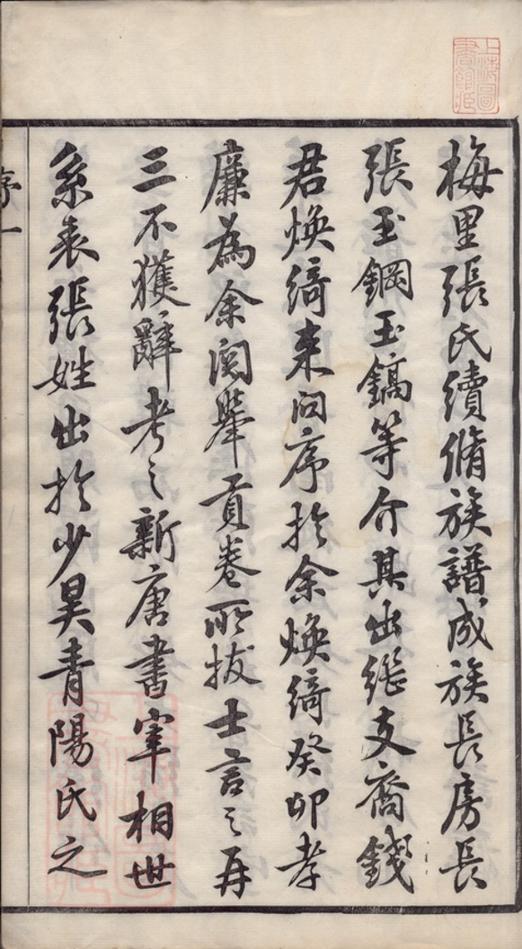 梅里張氏續脩族譜成族長房長
張玉鋼玉鎬等介其出繼支裔錢
君煥綺来問序於余煥綺癸卯孝
廉為余閱舉貢卷所拔士言之再
三不獲辭考之新唐書宰相世
系表張姓出於少昊青陽氏之
序一
上海圖書館藏